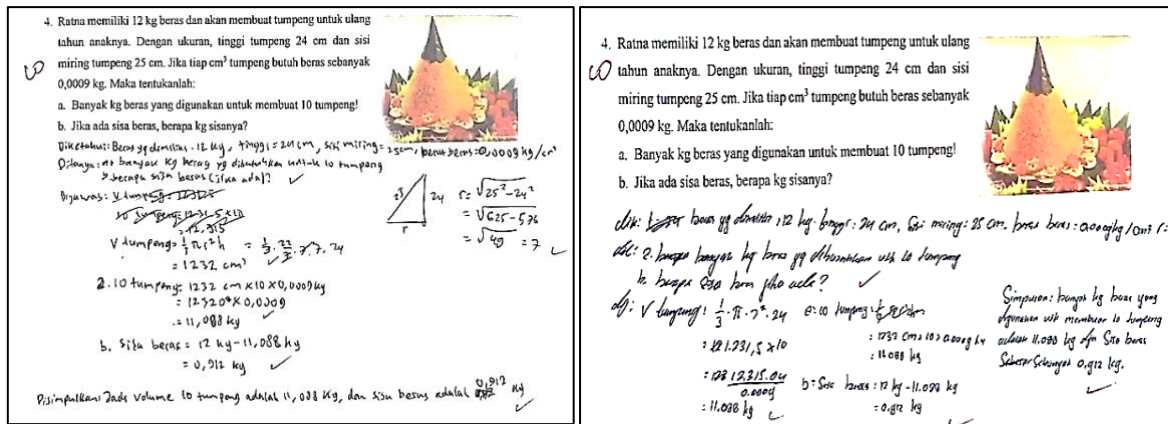 4. Ratna memiliki 12 kg beras dan akan membuat tumpeng untuk ulang
tahun anaknya. Dengan ukuran, tinggi tumpeng 24 cm dan sisi
miring tumpeng 25 cm. Jika tiap cm³ tumpeng butuh beras sebanyak
0,0009 kg. Maka tentukanlah:
a. Banyak kg beras yang digunakan untuk membuat 10 tumpeng!
b. Jika ada sisa beras, berapa kg sisanya?
Diketahui: Beras yg dimiliki = 12 kg, tinggi = 24 cm, sisi miring = 25 cm, berat beras = 0,0009 kg/cm³
Ditanya: a. banyak kg beras yg dibutuhkan untuk 10 tumpeng
b. berapa sisa beras (jika ada)?
Dijawab:
V tumpeng = 1/3 πr²h = 1/3 . 22/7 . 7 . 7 . 24
= 1232 cm³
25 24 r
r = √25² - 24²
= √625 - 576
= √49 = 7
a. 10 tumpeng = 1232 cm × 10 × 0,0009 kg
= 12320 × 0,0009
= 11,088 kg
b. Sisa beras = 12 kg - 11,088 kg
= 0,912 kg
Disimpulkan: Jadi volume 10 tumpeng adalah 11,088 kg, dan sisa beras adalah 0,912 kg
4. Ratna memiliki 12 kg beras dan akan membuat tumpeng untuk ulang
tahun anaknya. Dengan ukuran, tinggi tumpeng 24 cm dan sisi
miring tumpeng 25 cm. Jika tiap cm³ tumpeng butuh beras sebanyak
0,0009 kg. Maka tentukanlah:
a. Banyak kg beras yang digunakan untuk membuat 10 tumpeng!
b. Jika ada sisa beras, berapa kg sisanya?
dik: beras yg dimiliki : 12 kg. : 24 cm, Sisi miring : 25 cm. beras : 0.0009 kg/cm³
dit: a. berapa banyak kg beras yg dibutuhkan utk 10 tumpeng
b. berapa sisa beras jika ada?
dj: V tumpeng : 1/3 . π . 7² . 24
: 1.231,5 × 10
: 12.315.04
0.0009
: 11.088 kg
a: 10 tumpeng :
: 1232 cm × 10 × 0.0009 kg
: 11.088 kg
b = Sisa beras : 12 kg - 11.088 kg
: 0.912 kg
Simpulan : banyak kg beras yang
digunakan utk membuat 10 tumpeng
adalah 11.088 kg dgn Sisa beras
0.912 kg.